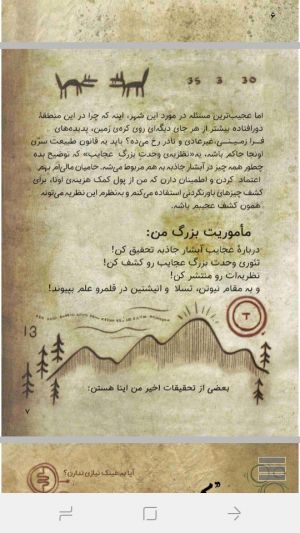 ۶
35 3 30
اما عجیب‌ترین مسئله در مورد این شهر، اینه که چرا در این منطقهٔ
دورافتاده بیشتر از هر جای دیگه‌ای روی کره‌ی زمین، پدیده‌های
فرا زمینی، غیرعادی و نادر رخ می‌ده؟ باید یه قانون طبیعت سرّی
اونجا حاکم باشه، یه «نظریه‌ی وحدت بزرگ عجایب» که توضیح بده
چطور همه چیز در آبشار جاذبه به هم مربوط می‌شه. حامیان مالی‌ام بهم
اعتماد کردن و اطمینان دارن که من از پول کمک هزینه‌ی اونا، برای
کشف چیزهای باورنکردنی استفاده می‌کنم و به‌نظرم این نظریه می‌تونه
همون کشف عجیبم باشه.
مأموریت بزرگ من:
دربارهٔ عجایب آبشار جاذبه تحقیق کن!
تئوری وحدت بزرگ عجایب رو کشف کن!
نظریه‌ات رو منتشر کن!
و به مقام نیوتن، تسلا و انیشتین در قلمرو علم بپیوند!
13
بعضی از تحقیقات اخیر من اینا هستن:
۷
آیا به عینک نیازی ندارن؟